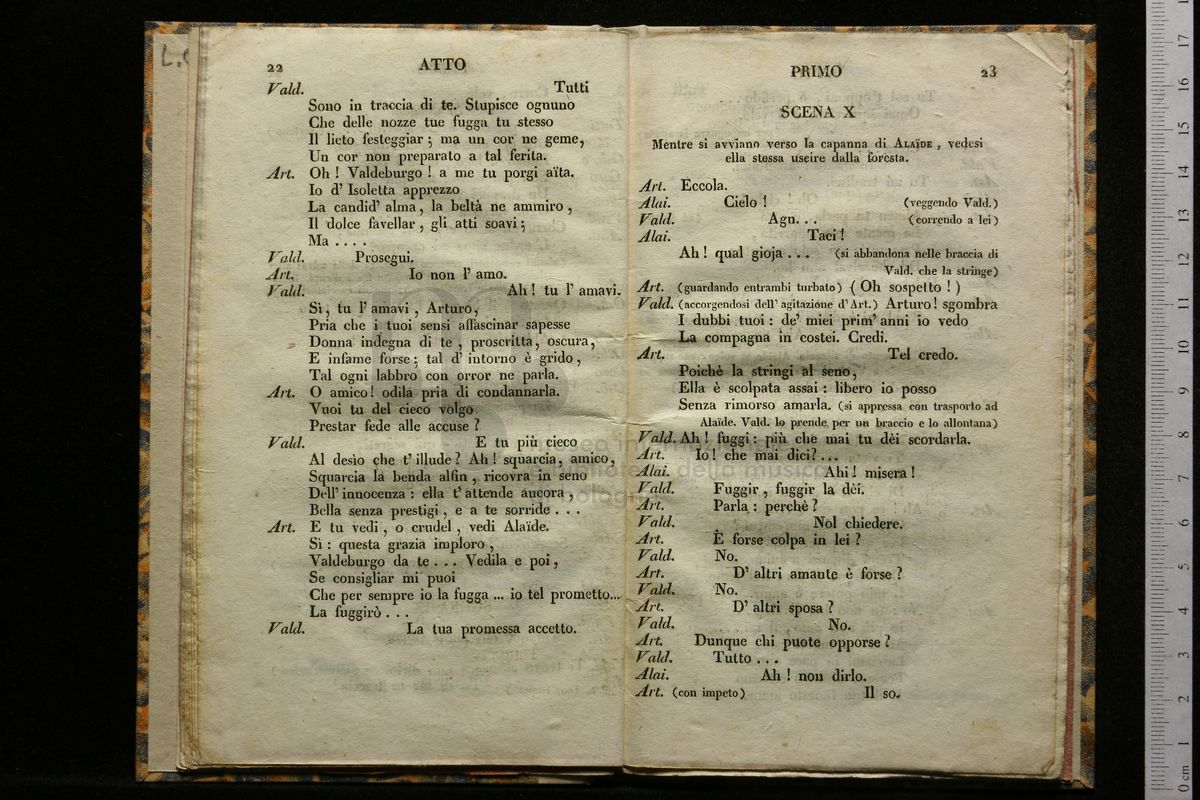 22 ATTO
Vald. Tutti
Sono in traccia di te. Stupisce ognuno
Che delle nozze tue fugga tu stesso
Il lieto festeggiar ; ma un cor ne geme,
Un cor non preparato a tal ferita.
Art. Oh ! Valdeburgo ! a me tu porgi aïta.
Io d' Isoletta apprezzo
La candid' alma , la beltà ne ammiro ,
Il dolce favellar , gli atti soavi ;
Ma . . . .
Vald. Prosegui.
Art. Io non l' amo.
Vald. Ah ! tu l' amavi.
Sì, tu l' amavi , Arturo,
Pria che i tuoi sensi affascinar sapesse
Donna indegna di te , proscritta, oscura,
E infame forse ; tal d' intorno è grido ,
Tal ogni labbro con orror ne parla.
Art. O amico ! odila pria di condannarla.
Vuoi tu del cieco volgo
Prestar fede alle accuse ?
Vald. E tu più cieco
Al desìo che t' illude ? Ah ! squarcia, amico,
Squarcia la benda alfin , ricovra in seno
Dell' innocenza : ella t' attende ancora ,
Bella senza prestigi , e a te sorride . . .
Art. E tu vedi , o crudel , vedi Alaïde.
Sì : questa grazia imploro ,
Valdeburgo da te . . . Vedila e poi ,
Se consigliar mi puoi
Che per sempre io la fugga ... io tel prometto...
La fuggirò . . .
Vald. La tua promessa accetto.
PRIMO 23
SCENA X
Mentre si avviano verso la capanna di ALAÏDE , vedesi
ella stessa useire dalla foresta.
Art. Eccola.
Alai. Cielo ! (veggendo Vald.)
Vald. Agn. . . (correndo a lei)
Alai. Taci !
Ah ! qual gioja . . . (si abbandona nelle braccia di
Vald. che la stringe)
Art. (guardando entrambi turbato) ( Oh sospetto ! )
Vald. (accorgendosi dell' agitazione d' Art.) Arturo ! sgombra
I dubbi tuoi : de' miei prim' anni io vedo
La compagna in costei. Credi.
Art. Tel credo.
Poichè la stringi al seno,
Ella è scolpata assai : libero io posso
Senza rimorso amarla. (si appressa con trasporto ad
Alaïde. Vald. lo prende per un braccio e lo allontana)
Vald. Ah ! fuggi : più che mai tu dèi scordarla.
Art. Io ! che mai dici ? . . .
Alai. Ahi ! misera !
Vald. Fuggir , fuggir la dèi.
Art. Parla : perchè ?
Vald. Nol chiedere.
Art. È forse colpa in lei ?
Vald. No.
Art. D' altri amante è forse ?
Vald. No.
Art. D' altri sposa ?
Vald. No.
Art. Dunque chi puote opporse ?
Vald. Tutto . . .
Alai. Ah ! non dirlo.
Art. (con impeto) Il so.